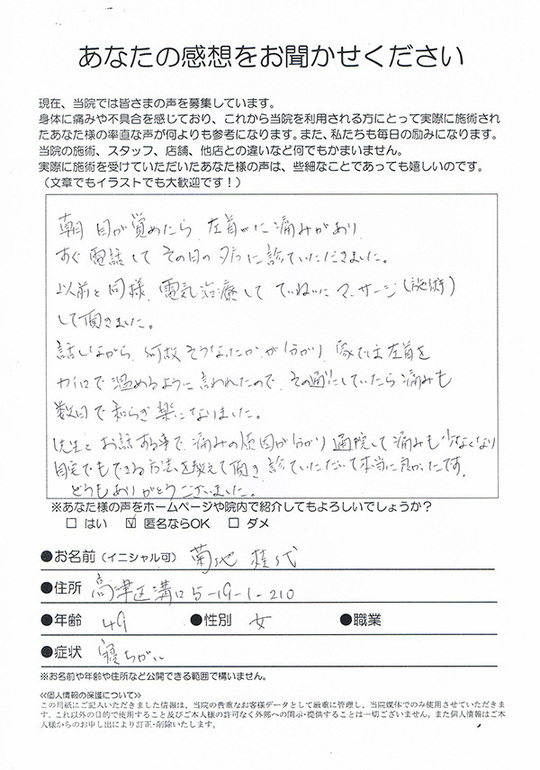 あなたの感想をお聞かせください
現在、当院では皆さまの声を募集しています。
身体に痛みや不具合を感じており、これから当院を利用される方にとって実際に施術され
たあなた様の率直な声が何よりも参考になります。また、私たちも毎日の励みになります。
当院の施術、スタッフ、店舗、他店との違いなど何でもかまいません。
実際に施術を受けていただいたあなた様の声は、些細なことであっても嬉しいのです。
(文章でもイラストでも大歓迎です!)
朝 目が覚めたら 左首に痛みがあり
すぐ電話して その日の夕方に診ていただきました。
以前と同様、電気治療して ていねいにマッサージ(施術)
して頂きました。
話しながら、何故そうなったか が分かり 家では左首を
カイロで温めるように言われたので、その通りにしていたら痛みも
数日で和らぎ楽になりました。
先生とお話する事で、痛みの原因が分かり 通院して痛みも少なくなり
自宅でもできる方法を教えて頂き 診ていただいて本当に良かったです。
どうもありがとうございました。
※あなた様の声をホームページや院内で紹介してもよろしいでしょうか?
□ はい ☑ 匿名ならOK □ ダメ
●お名前(イニシャル可) 菊地 桂代
●住所 高津区溝口5-19-1-210
●年齢 49 ●性別 女 ●職業
●症状 寝ちがい
※お名前や年齢や住所など公開できる範囲で構いません。
≪個人情報の保護について≫
この用紙にご記入いただきました情報は、当院の貴重なお客様データとして厳重に管理し、当院媒体でのみ使用させていただきま
す。これ以外の目的で使用すること及びご本人様の許可なく外部への開示・提供することは一切ございません。また個人情報はご本
人様からのお申し出により訂正・削除いたします。